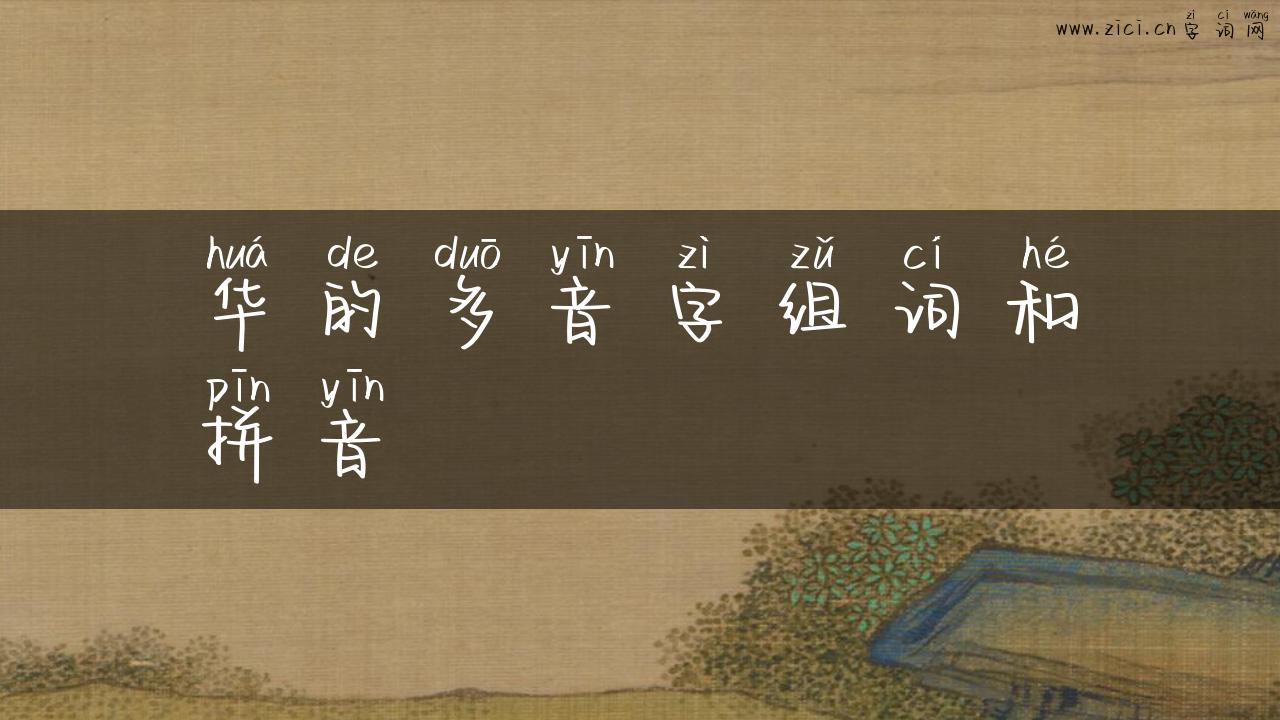 zì cí wǎng
www.zīcī.cn 字 词 网
huá de duō yīn zì zǔ cí hé
华 的 多 音 字 组 词 和
pīn yīn
拼 音